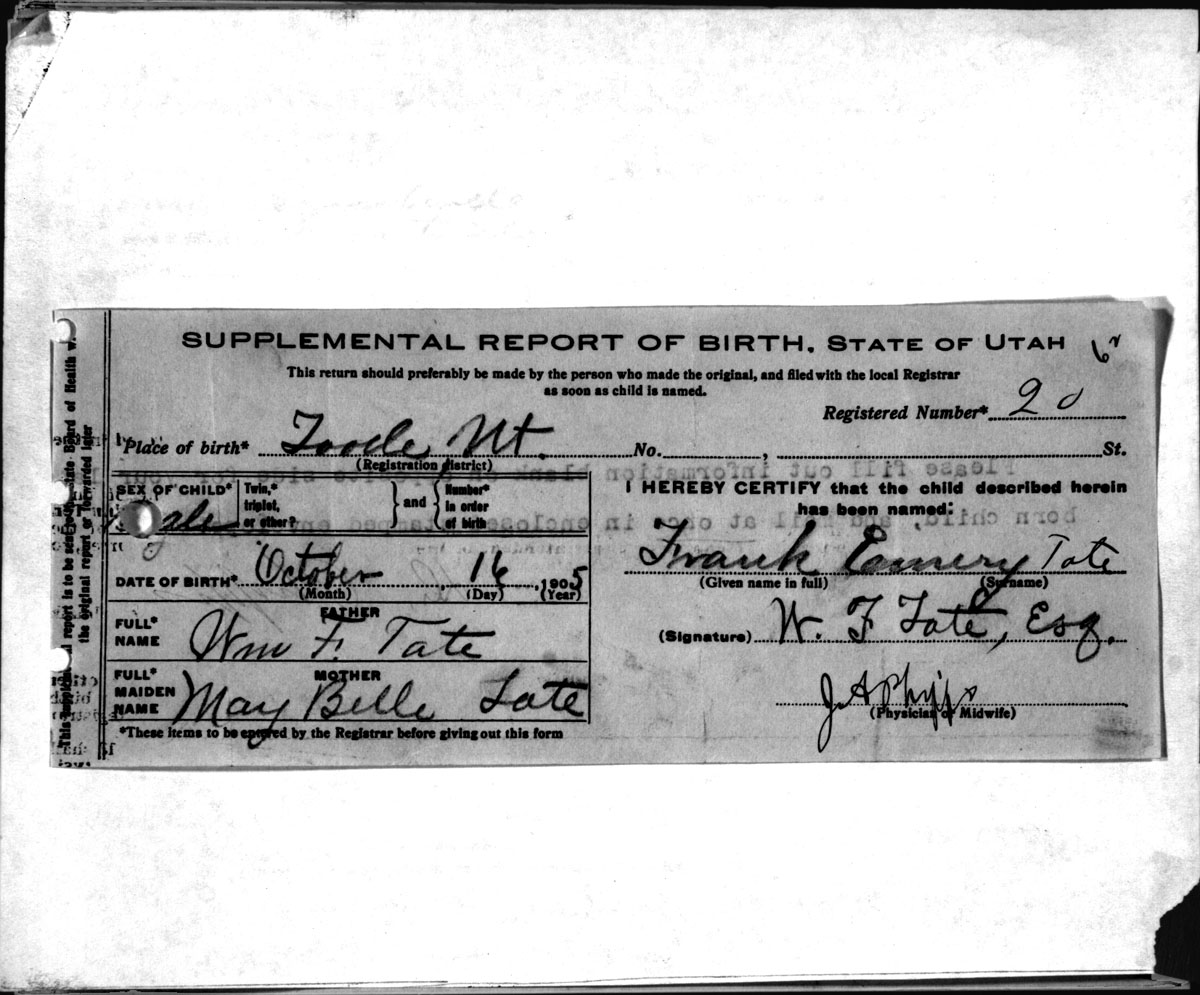 SUPPLEMENTAL REPORT OF BIRTH, STATE OF UTAH
This return should preferably be made by the person who made the original, and filed with the local Registrar
as soon as child is named.
Registered Number* 20
Place of birth* Tooele Ut. No. , St.
(Registration district)
SEX OF CHILD* Male
Twin,* triplet, or other?
and
Number* in order of birth
DATE OF BIRTH* October 16, 1905
(Month) (Day) (Year)
FATHER
FULL* NAME Wm F. Tate
MOTHER
FULL* MAIDEN NAME May Belle Tate
*These items to be entered by the Registrar before giving out this form
I HEREBY CERTIFY that the child described herein
has been named:
Frank Emery Tate
(Given name in full) (Surname)
(Signature) W. F Tate, Esq.
J. A Phipps
(Physician or Midwife)
This supplemental report is to be sent to the State Board of Health w.
the original report or forwarded later
Please fill out information blank on
born child, and mail at once in enclosed stamped